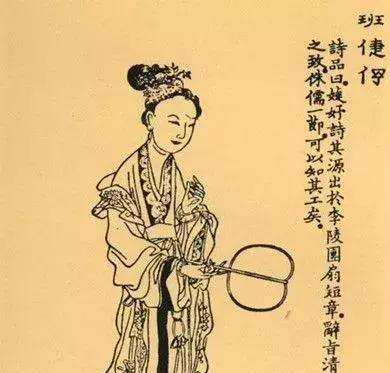 班倢伃
詩品曰。婕妤詩其源出於李陵團扇短章。辭旨清
之致。侏儒一節。可以知其工矣。